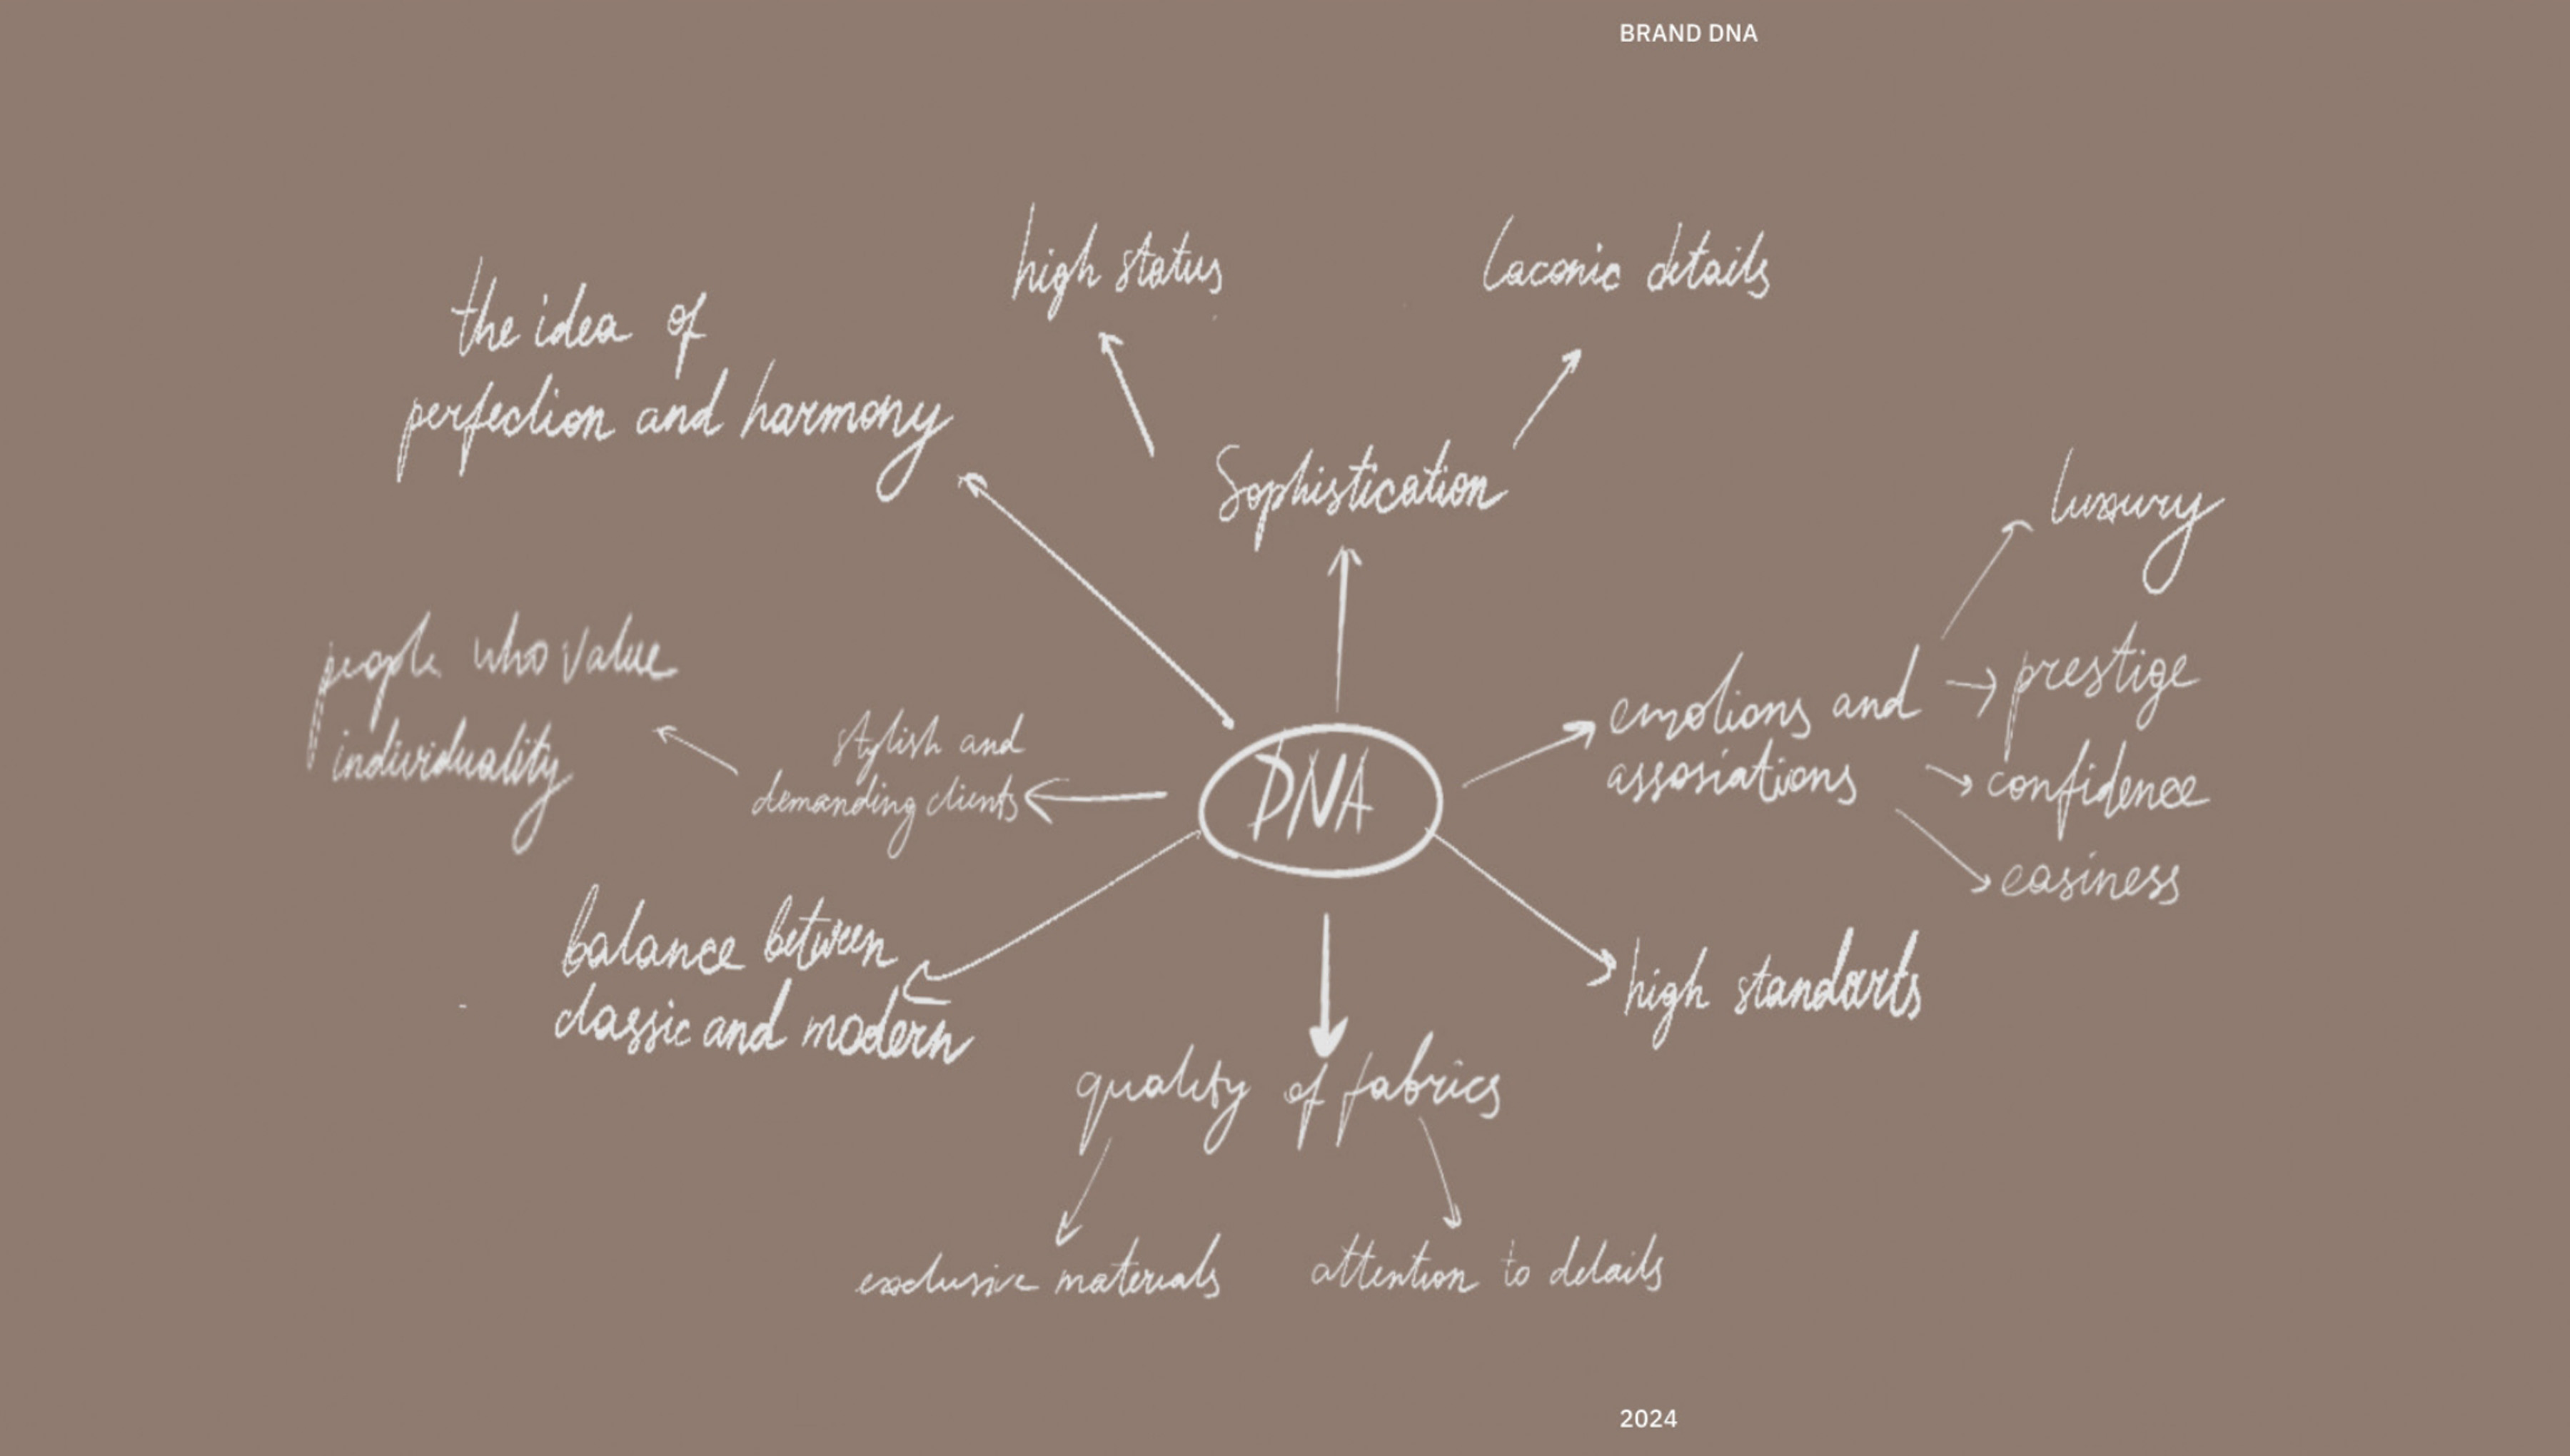 BRAND DNA
high status
laconic details
the idea of
perfection and harmony
Sophistication
luxury
people who value
individuality
stylish and
demanding clients
DNA
emotions and
assosiations
prestige
confidence
easiness
balance between
classic and modern
high standarts
quality of fabrics
exclusive materials
attention to details
2024